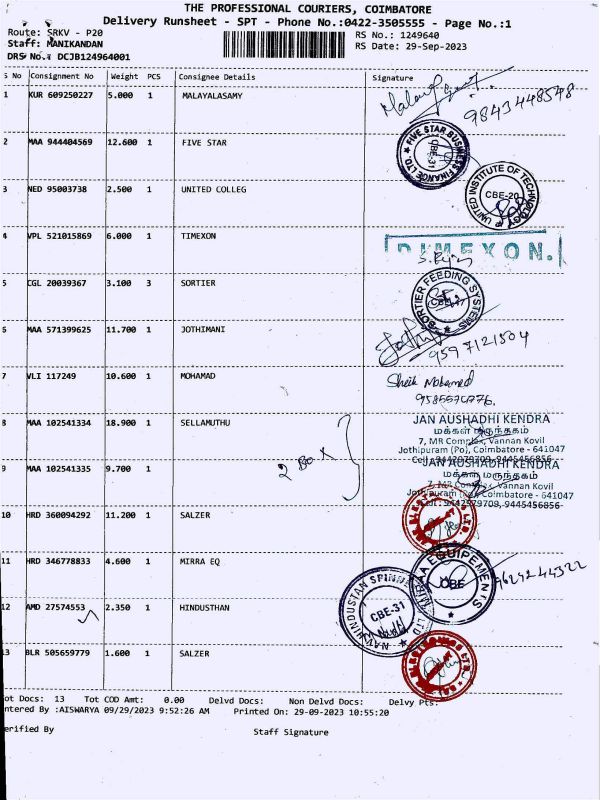 THE PROFESSIONAL COURIERS, COIMBATORE
Delivery Runsheet - SPT - Phone No.:0422-3505555 - Page No.:1
Route: SRKV - P20
RS No.: 1249640
Staff: MANIKANDAN
RS Date: 29-Sep-2023
DRS No.: DCJB124964001
S No Consignment No Weight PCS Consignee Details Signature
1 KUR 609250227 5.000 1 MALAYALASAMY
9843448548
2 MAA 944404569 12.600 1 FIVE STAR
FIVE STAR BUSINESS FINANCE LTD. CBE-31
3 NED 95003738 2.500 1 UNITED COLLEG
UNITED INSTITUTE OF TECHNOLOGY CBE-20
4 VPL 521015869 6.000 1 TIMEXON
DIMEXON.
5 CGL 20039367 3.100 3 SORTIER
SORTIER FEEDING SYSTEMS
6 MAA 571399625 11.700 1 JOTHIMANI
9597121504
7 VLI 117249 10.600 1 MOHAMAD
Sheik Mohamed
8 MAA 102541334 18.900 1 SELLAMUTHU
JAN AUSHADHI KENDRA
மக்கள் மருந்தகம்
7, MR Complex, Vannan Kovil
Jothipuram (Po), Coimbatore - 641047
Cell : 9442979709, 9445456856
2 Box
9 MAA 102541335 9.700 1
JAN AUSHADHI KENDRA
மக்கள் மருந்தகம்
7, MR Complex, Vannan Kovil
Jothipuram (Po), Coimbatore - 641047
Cell : 9442979709, 9445456856
10 HRD 360094292 11.200 1 SALZER
11 HRD 346778833 4.600 1 MIRRA EQ
EQUIPEMENTS CBE
9629244322
12 AMD 27574553 2.350 1 HINDUSTHAN
HINDUSTAN CBE-31
13 BLR 505659779 1.600 1 SALZER
Tot Docs: 13 Tot COD Amt: 0.00 Delvd Docs: Non Delvd Docs: Delvy Pts:
Entered By :AISWARYA 09/29/2023 9:52:26 AM Printed On: 29-09-2023 10:55:20
Verified By Staff Signature